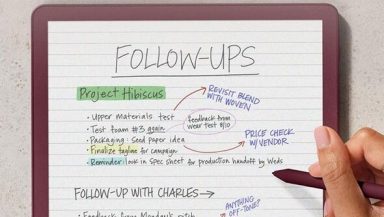 FOLLOW-UPS
Project Hibiscus
REVISIT BLEND
WITH WOVEN
• Upper Materials test
• Test foam #3 again
feedback from
wear test 8/10
• Packaging: Seed paper idea
• Finalize tagline for campaign
PRICE CHECK
W/ VENDOR
• Reminder: look in spec sheet for production handoff by Weds
FOLLOW-UP WITH CHARLES
ANYTHING
OFF-TONE?
• Feedback from Monday's pitch